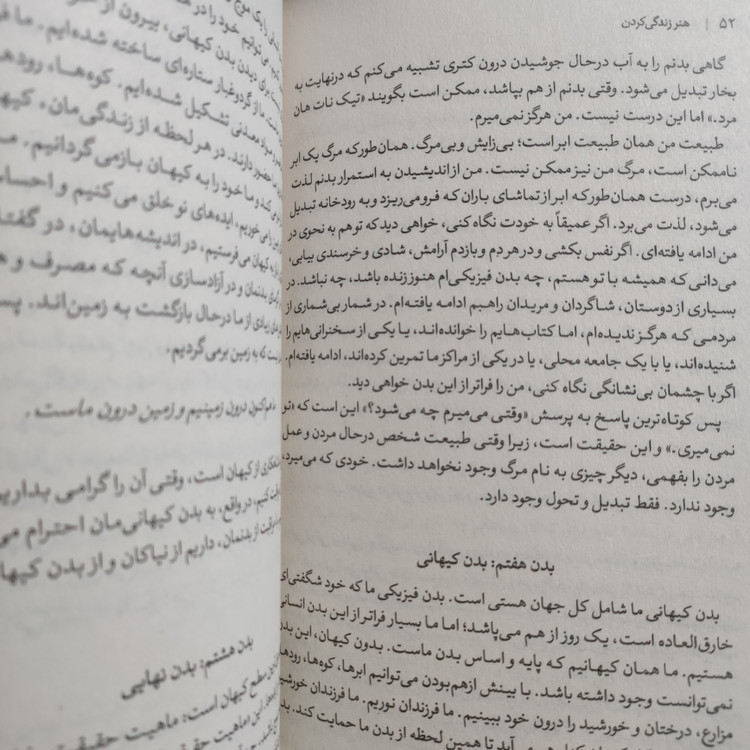 ۵۲ | هنر زندگی‌کردن
گاهی بدنم را به آب درحال جوشیدن درون کتری تشبیه می‌کنم که درنهایت به
بخار تبدیل می‌شود. وقتی بدنم از هم بپاشد، ممکن است بگویند «تیک نات هان
مرد.» اما این درست نیست. من هرگز نمی‌میرم.
طبیعت من همان طبیعت ابر است؛ بی‌زایش و بی‌مرگ. همان‌طور که مرگ یک ابر
ناممکن است، مرگ من نیز ممکن نیست. من از اندیشیدن به استمرار بدنم لذت
می‌برم، درست همان‌طور که ابر از تماشای باران که فرومی‌ریزد و به رودخانه تبدیل
می‌شود، لذت می‌برد. اگر عمیقاً به خودت نگاه کنی، خواهی دید که تو هم به نحوی در
من ادامه یافته‌ای. اگر نفس بکشی و در هر دم و بازدم آرامش، شادی و خرسندی بیابی،
می‌دانی که همیشه با تو هستم، چه بدن فیزیکی‌ام هنوز زنده باشد، چه نباشد. در
بسیاری از دوستان، شاگردان و مریدان راهبم ادامه یافته‌ام. در شمار بی‌شماری از
مردمی که هرگز ندیده‌ام، اما کتاب‌هایم را خوانده‌اند، یا یکی از سخنرانی‌هایم را
شنیده‌اند، یا با یک جامعه محلی، یا در یکی از مراکز ما تمرین کرده‌اند، ادامه یافته‌ام.
اگر با چشمان بی‌نشانگی نگاه کنی، من را فراتر از این بدن خواهی دید.
پس کوتاه‌ترین پاسخ به پرسش «وقتی می‌میرم چه می‌شود؟» این است که «تو
نمی‌میری.» و این حقیقت است، زیرا وقتی طبیعت شخص درحال مردن و عمل
مردن را بفهمی، دیگر چیزی به نام مرگ وجود نخواهد داشت. خودی که می‌میرد،
وجود ندارد. فقط تبدیل و تحول وجود دارد.
بدن هفتم: بدن کیهانی
بدن کیهانی ما شامل کل جهان هستی است. بدن فیزیکی ما که خود شگفتی‌ای
خارق‌العاده است، یک روز از هم می‌پاشد؛ اما ما بسیار فراتر از این بدن انسانی
هستیم. ما همان کیهانیم که پایه و اساس بدن ماست. بدون کیهان، این بدن
نمی‌توانست وجود داشته باشد. با بینش ازهم‌بودن می‌توانیم ابرها، کوه‌ها، رودها،
مزارع، درختان و خورشید را درون خود ببینیم. ما فرزندان نوریم. ما فرزندان خورشید
آید تا همین لحظه از بدن ما حمایت کند. بدن
ما از گردوغبار ستاره‌ای ساخته شده‌ایم. ما
مواد معدنی تشکیل شده‌ایم. کوه‌ها، رودها
حضور دارند. در هر لحظه از زندگی‌مان، کیهان
می‌کند و ما خود را به کیهان بازمی‌گردانیم. ما
می‌خوریم، ایده‌های نو خلق می‌کنیم و
کیهان می‌فرستیم، در اندیشه‌هایمان، در
بدنمان و در آزادسازی آنچه که مصرف و
زیادی از ما درحال بازگشت به زمین‌اند. پس
که به زمین برمی‌گردیم.
هم‌اکنون درون زمینیم و زمین درون ماست.
از کیهان است، وقتی آن را گرامی بداریم
کنیم، درواقع، به بدن کیهانی‌مان احترام
از بدنمان، داریم از نیاکان و از بدن
بدن هشتم: بدن نهایی
سطح کیهان است؛ ماهیت حقیقت